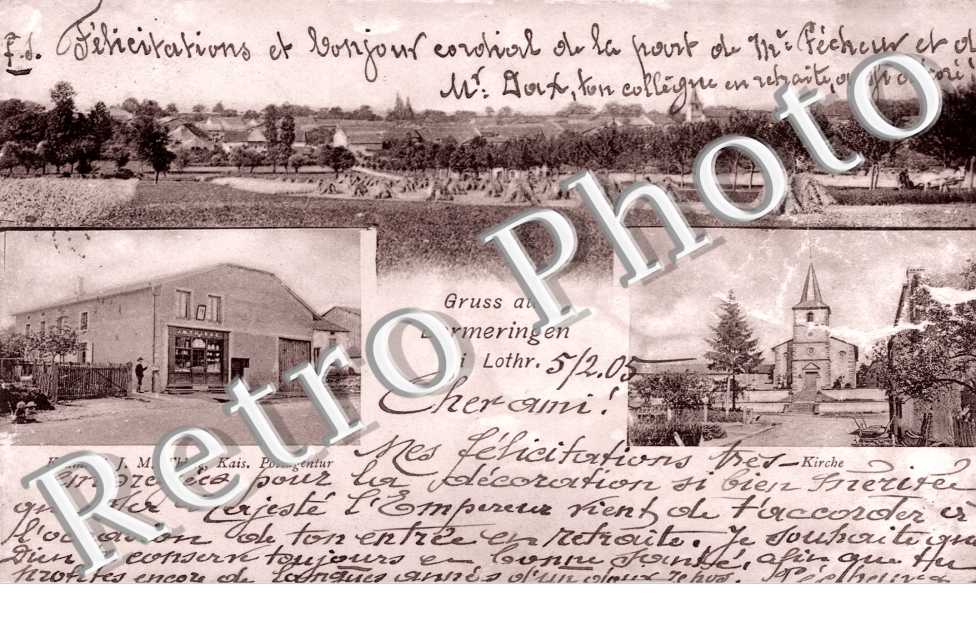 F. S. Félicitations et bonjour cordial de la part de Mr Pêcheur et de
Mr. Dax, ton collègne en retraite,
Gruss au
ermeringen
i Lothr. 5/2.05
Cher ami!
J. M. Kais. Postagentur
Kirche
Mes félicitations très-
empressées pour la décoration si bien méritée
que Sa Majesté l'Empereur vient de t'accorder à
l'occasion de ton entrée en retraite. Je souhaite que
Dieu te conserve toujours en bonne santé, afin que tu
profites encore de longues années d'un doux repos. Pêcheur
Retro Photo